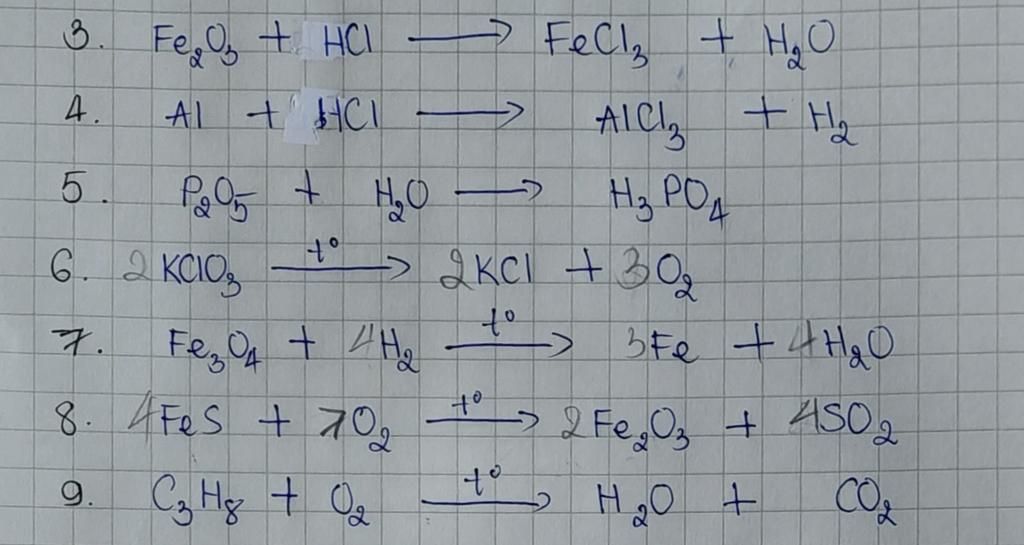 3. Fe₂O₃ + HCl ⟶ FeCl₃ + H₂O
4. Al + HCl ⟶ AlCl₃ + H₂
5. P₂O₅ + H₂O ⟶ H₃PO₄
6. 2KClO₃ t° ⟶ 2KCl + 3O₂
7. Fe₃O₄ + 4H₂ t° ⟶ 3Fe + 4H₂O
8. 4FeS + 7O₂ t° ⟶ 2Fe₂O₃ + 4SO₂
9. C₃H₈ + O₂ t° ⟶ H₂O + CO₂